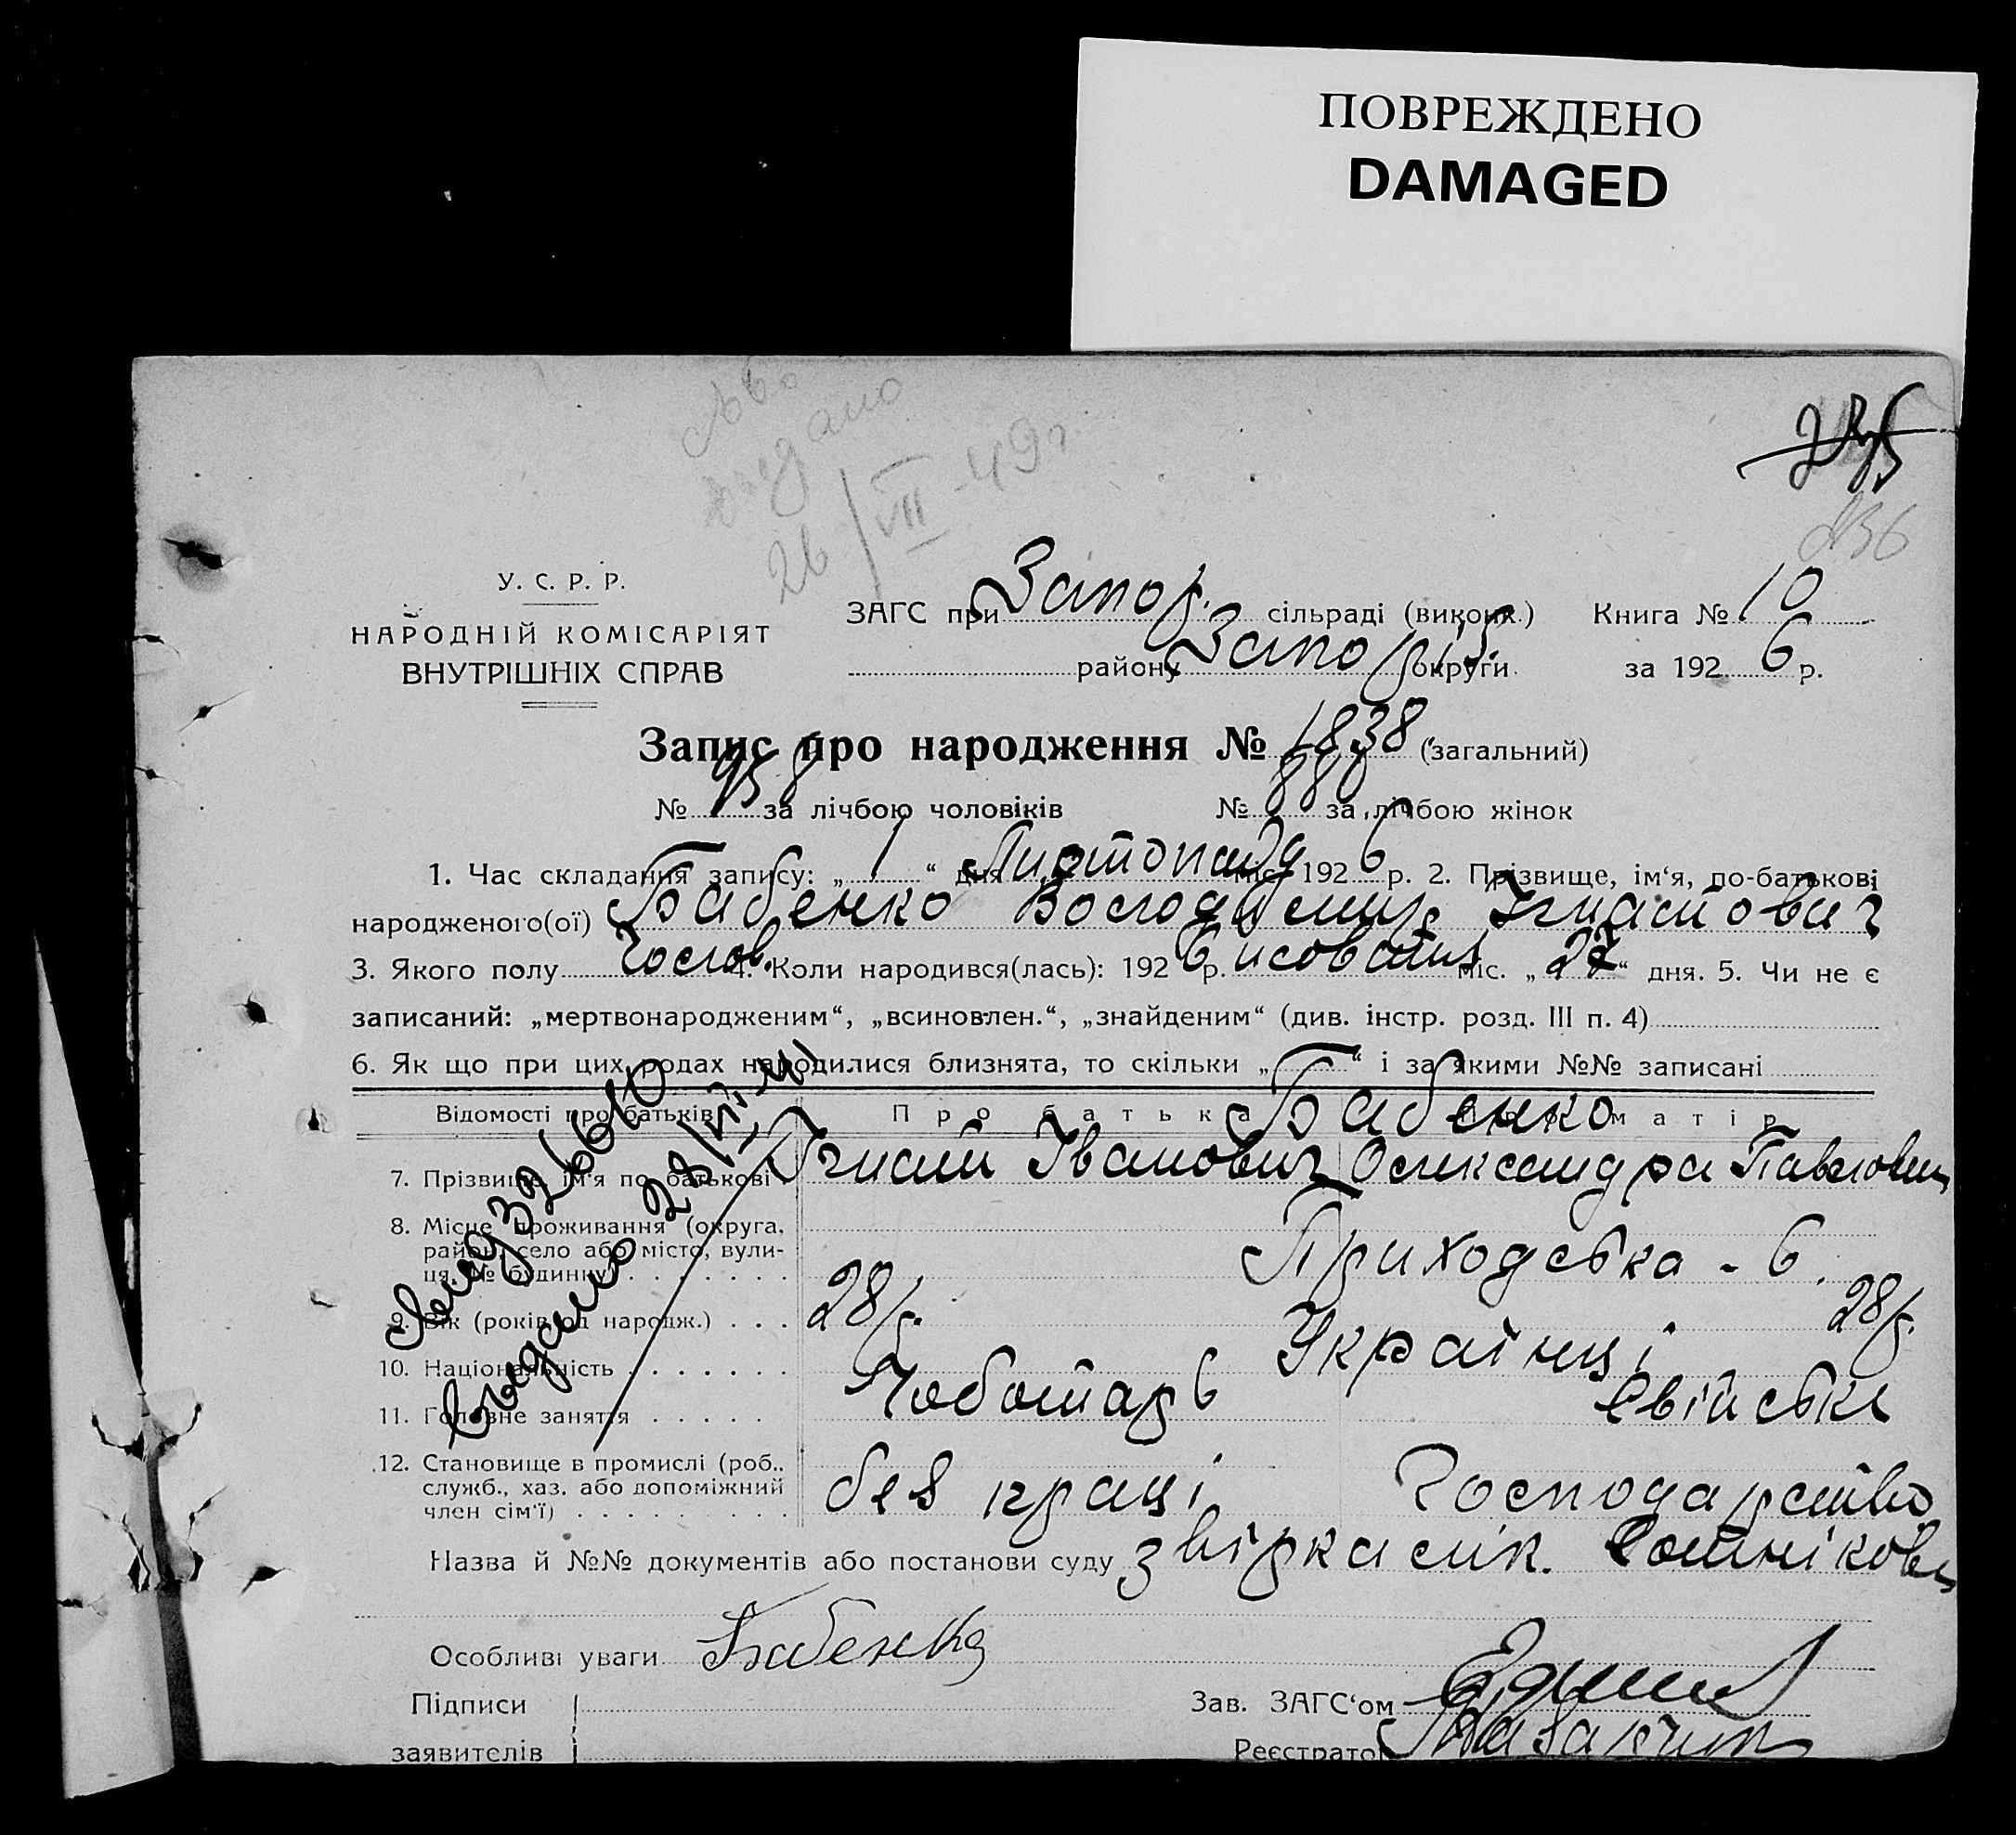 ПОВРЕЖДЕНО
DAMAGED
выдано
26/VII-49г.
235
У. С. Р. Р.
НАРОДНІЙ КОМІСАРІЯТ
ВНУТРІШНІХ СПРАВ
ЗАГС при Запор. сільраді (виконк.) Книга № 10
району Запоріз. округи за 1926 р.
Запис про народження № 1838 (загальний)
№ 958 за лічбою чоловіків № 880 за лічбою жінок
1. Час складання запису: „1“ дня Листопада міс. 1926 р. 2. Прізвище, ім‘я, по-батькові
народженого(ої) Бабенко Володимир Ігнатович
3. Якого полу Чолов. 4. Коли народився(лась): 1926 р. жовтня міс. „27“ дня. 5. Чи не є
записаний: „мертвонародженим“, „всиновлен.“, „знайденим“ (див. інстр. розд. III п. 4)
6. Як що при цих родах народилися близнята, то скільки „ “ і за якими №№ записані
Відомості про батьків Про батька Бабенко Про матір
7. Прізвище, ім‘я по батькові Ігнат Іванович Олександра Павловна
8. Місце проживання (округа,
район, село або місто, вули-
ця, № будинку) Приходська - 6.
9. Вік (років од народж.) 28 р. 28 р.
10. Національність Українці
11. Головне заняття Чоботарь Свійське
12. Становище в промислі (роб.,
служб., хаз. або допоміжний
член сім‘ї) без праці Господарство
выдано
Назва й №№ документів або постанови суду звірка лік.
Особливі уваги Бабенко
Підписи
заявителів
Зав. ЗАГС‘ом
Реєстратор